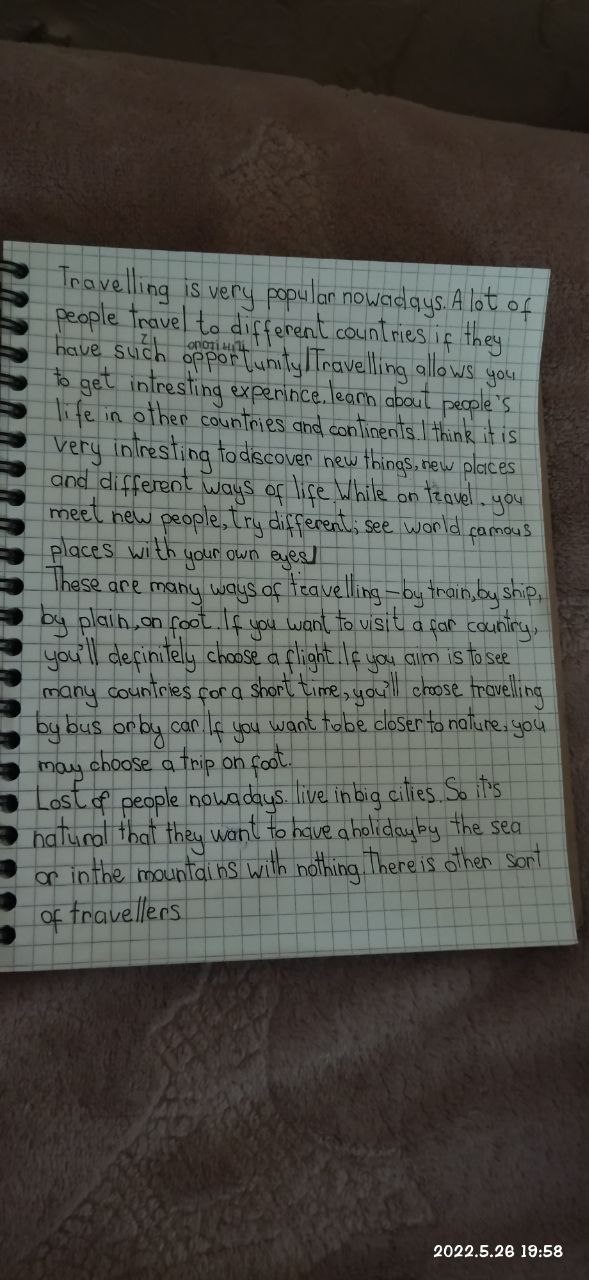 Travelling is very popular nowadays. A lot of
people travel to different countries if they
have such opportunity. Travelling allows you
to get intresting experince, learn about people's
life in other countries and continents. I think it is
very intresting to discover new things, new places
and different ways of life. While on travel, you
meet new people, try different; see world famous
places with your own eyes
These are many ways of travelling - by train, by ship,
by plain, on foot. If you want to visit a far country,
you'll definitely choose a flight. If you aim is to see
many countries for a short time, you'll choose travelling
by bus or by car. If you want to be closer to nature, you
may choose a trip on foot.
Lost of people nowadays. live in big cities. So it's
natural that they want to have a holiday by the sea
or in the mountains with nothing. There is other sort
of travellers
2022.5.26 19:58